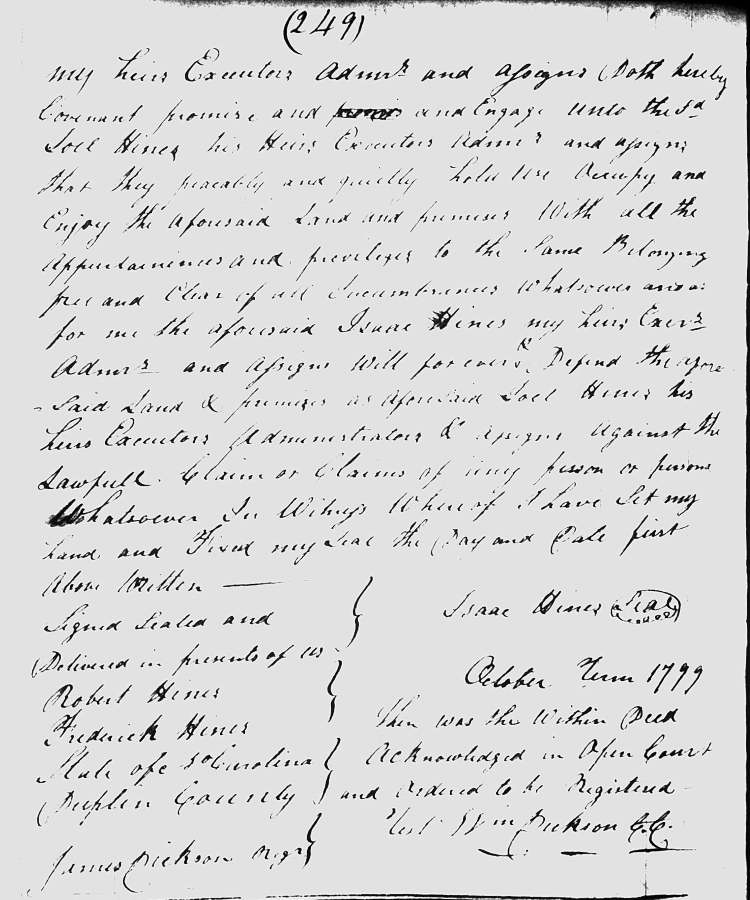 (249)
my heirs Executors Admrs and assigns Doth hereby
Covenant promise and and Engage unto the sd
Joel Hines his Heirs Executors Admrs and assigns
that they peaceably and quietly hold use Occupy and
Enjoy the aforesaid Land and premises With all the
Appurtainences and priviliges to the Same Belonging
free and Clear of all Incumbrences Whatsoever and as
for me the aforesaid Isaac Hines my heirs Exers
Admrs and assigns Will forever & Defend the afore
-Said Land & premises as aforesaid Joel Hines his
heirs Executors Administrators & assigns against the
Lawfull Claim or Claims of any person or persons
Whatsoever In Witness Whereof I have Set my
hand and Fixed my seal the Day and Date first
Above Written —
Signed Sealed and
Delivered in presents of us
Robert Hines
Frederick Hines
State of No Carolina
Duplin County
James Dickson Regr
Isaac Hines Seal
October Term 1799
Then was the Within Deed
Acknowledged in Open Court
and Ordered to be Registered
Test Wm Dickson C.C.